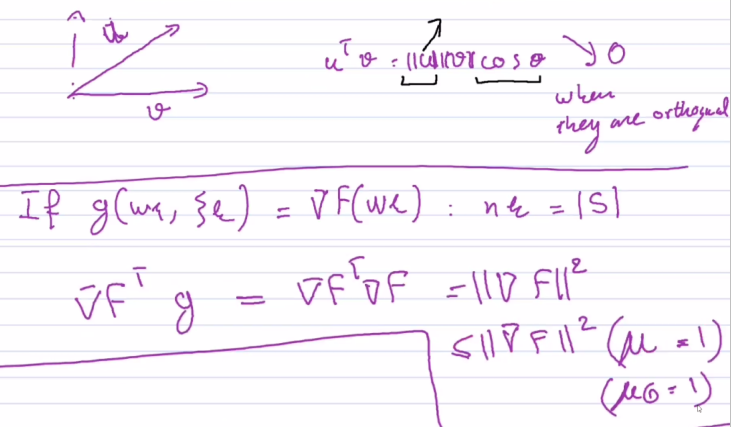 u
v
uᵀv = ||u|| ||v|| cos θ → 0
when
they are orthogonal
If g(wk, ξk) = ∇F(wk) : nk = |S|
∇Fᵀ g = ∇Fᵀ∇F = ||∇F||²
≤ ||∇F||² (μ = 1)
(μG = 1)